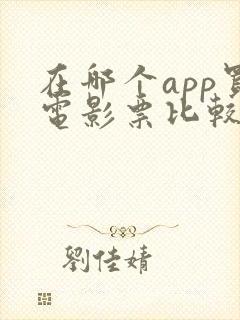 在哪个app買
電影票比較
劉佳婧